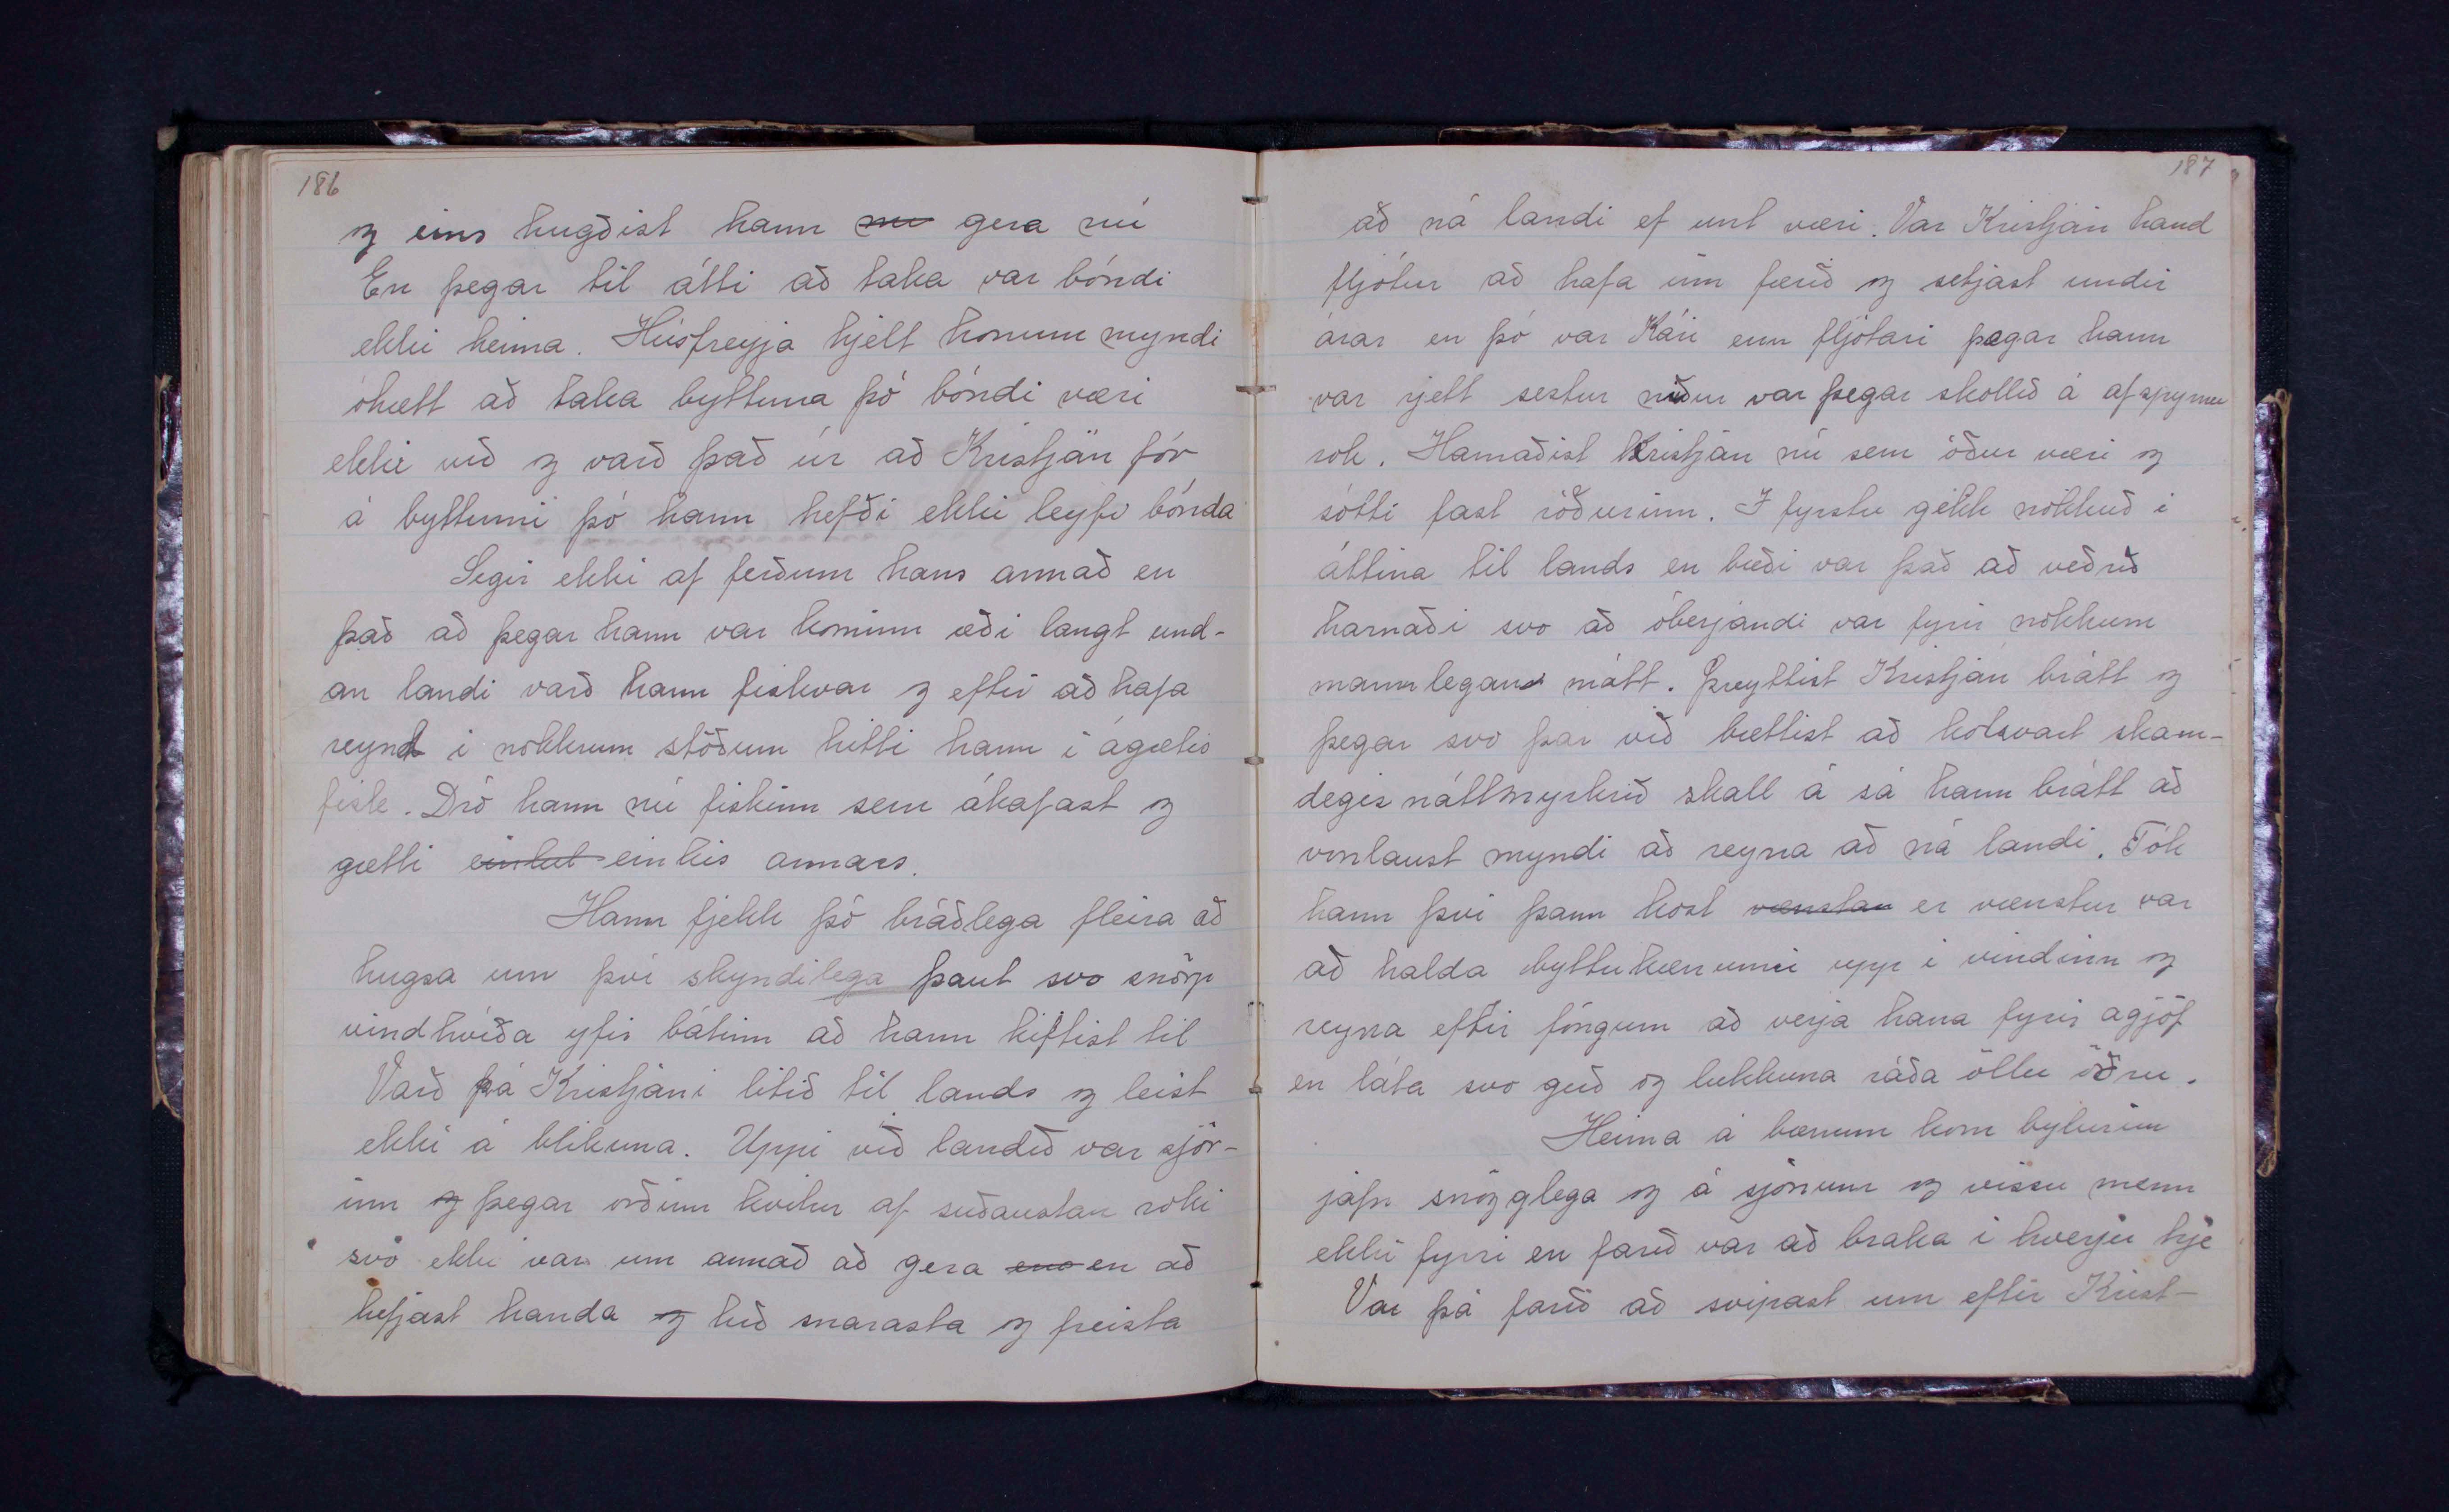 186
og eins hugðist hann nu gera nú
En þegar til átti að taka var bóndi
ekki heima. Húsfreyja hjelt honum myndi
óhætt að taka byttuna þó bóndi væri
ekki við og varð það úr að Kristján fór
á byttunni þó hann hefði ekki leyfi bónda
Segir ekki af ferðum hans annað en
það að þegar hann var kominn æði langt und-
an landi varð hann fiskvar og eftir að hafa
reynt í nokkrum stöðum hitti hann í ágætis
fisk. Dró hann nú fiskinn sem ákafast og
gætti einkut einkis annars.
Hann fjekk þó bráðlega fleira að
hugsa um því skyndilega þaut svo snörp
vindhviða yfir bátinn að hann kiftist til
Varð þá Kristjáni litið til lands og leist
ekki á blikuna. Uppi við landið var sjór-
inn og þegar orðinn hvítur af suðaustan roki
svo ekki var um annað að gera eno en að
hefjast handa og hið snarasta og freista
187
að ná landi ef unt væri. Var Kristján hand
fljótur að hafa inn færið og setjast undir
árar en þó var Kári enn fljótari þegar hann
var rjett sestur niður var þegar skollið á afspyrnu
rok. Hamaðist Kristján nú sem óður væri og
sótti fast róðurinn. I fyrstu gekk nokkuð í
áttina til lands en bæði var það að veðrið
harnaði svo að óberjandi var fyrir nokkurn
mannlegann mátt. Þreyttist Kristján brátt og
þegar svo þar við bættist að kolsvart skam-
degis náttmyrkrið skall á sá hann brátt að
vonlaust myndi að reyna að ná landi. Tók
hann því þann kost vænstan er vænstur var
að halda byttukænunni upp í vindinn og
reyna eftir föngum að verja hana fyrir agjöf
en láta svo guð og lukkuna ráða öllu öðru.
Heima á bænum kom bylurinn
jafn snögglega og á sjónum og vissu menn
ekki fyrri en farið var að braka í hverju trje
Var þá farið að svipast um eftir Krist-